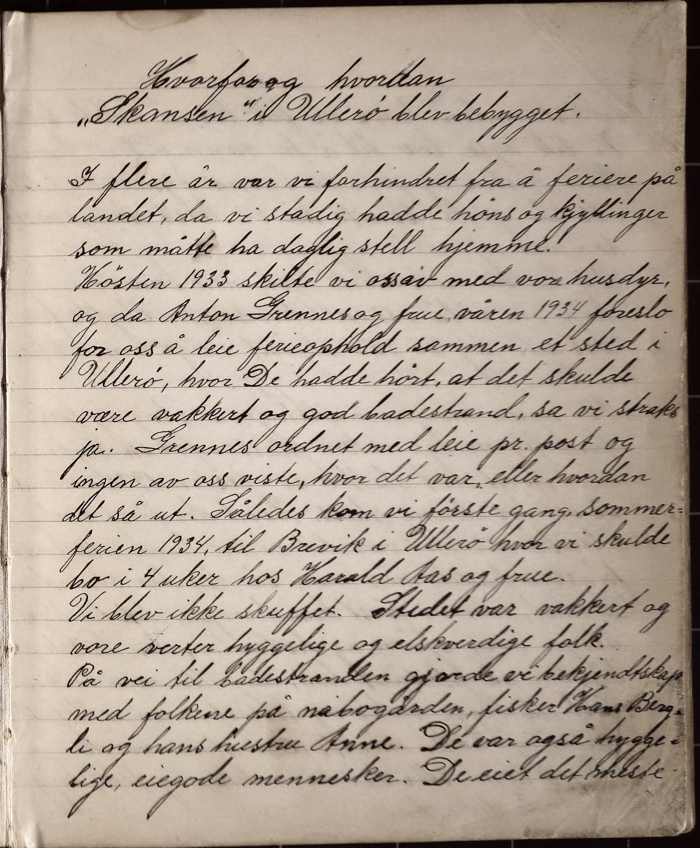 Hvorfor og hvordan
„Skansen" i Ullerö blev bebygget.
I flere år var vi forhindret fra å feriere på
landet, da vi stadig hadde höns og kjyllinger
som måtte ha daglig stell hjemme.
Hösten 1933 skilte vi oss av med vore husdyr,
og da Anton Grennes og frue våren 1934 foreslo
for oss å leie ferieophold sammen et sted i
Ullerö, hvor De hadde hört, at det skulde
være vakkert og god badestrand, sa vi straks
ja. Grennes ordnet med leie pr. post og
ingen av oss viste, hvor det var, eller hvordan
det så ut. Således kom vi förste gang, sommer-
ferien 1934, til Brevik i Ullerö hvor vi skulde
bo i 4 uker hos Harald Aas og frue.
Vi blev ikke skuffet. Stedet var vakkert og
vore verter hyggelige og elskverdige folk.
På vei til badestranden gjorde vi bekjendtskap
med folkene på nabogården, fisker Hans Berg-
li og hans hustru Anne. De var også hygge-
lige, eiegode mennesker. De eiet det meste